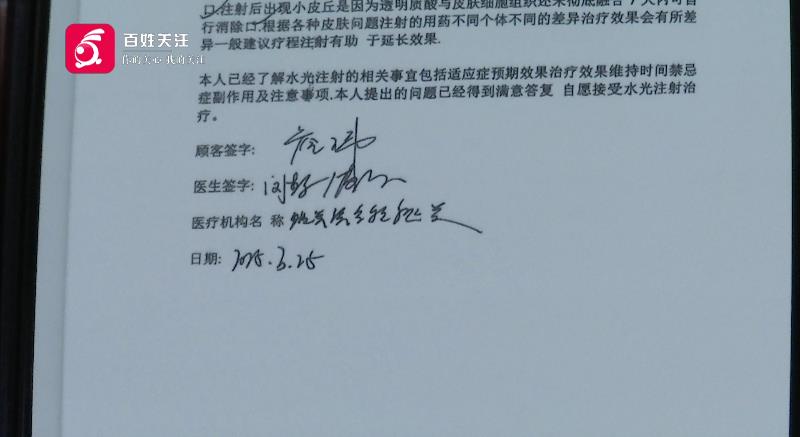 百姓关注
你的关心 我的关注
口.注射后出现小皮丘是因为透明质酸与皮肤细胞组织还未彻底融合7天内可自
行消除口.根据各种皮肤问题注射的用药不同个体不同的差异治疗效果会有所差
异一般建议疗程注射有助 于延长效果.
本人已经了解水光注射的相关事宜包括适应症预期效果治疗效果维持时间禁忌
症副作用及注意事项.本人提出的问题已经得到满意答复 自愿接受水光注射治
疗。
顾客签字:
医生签字:
医疗机构名 称
日期: 2025.3.25